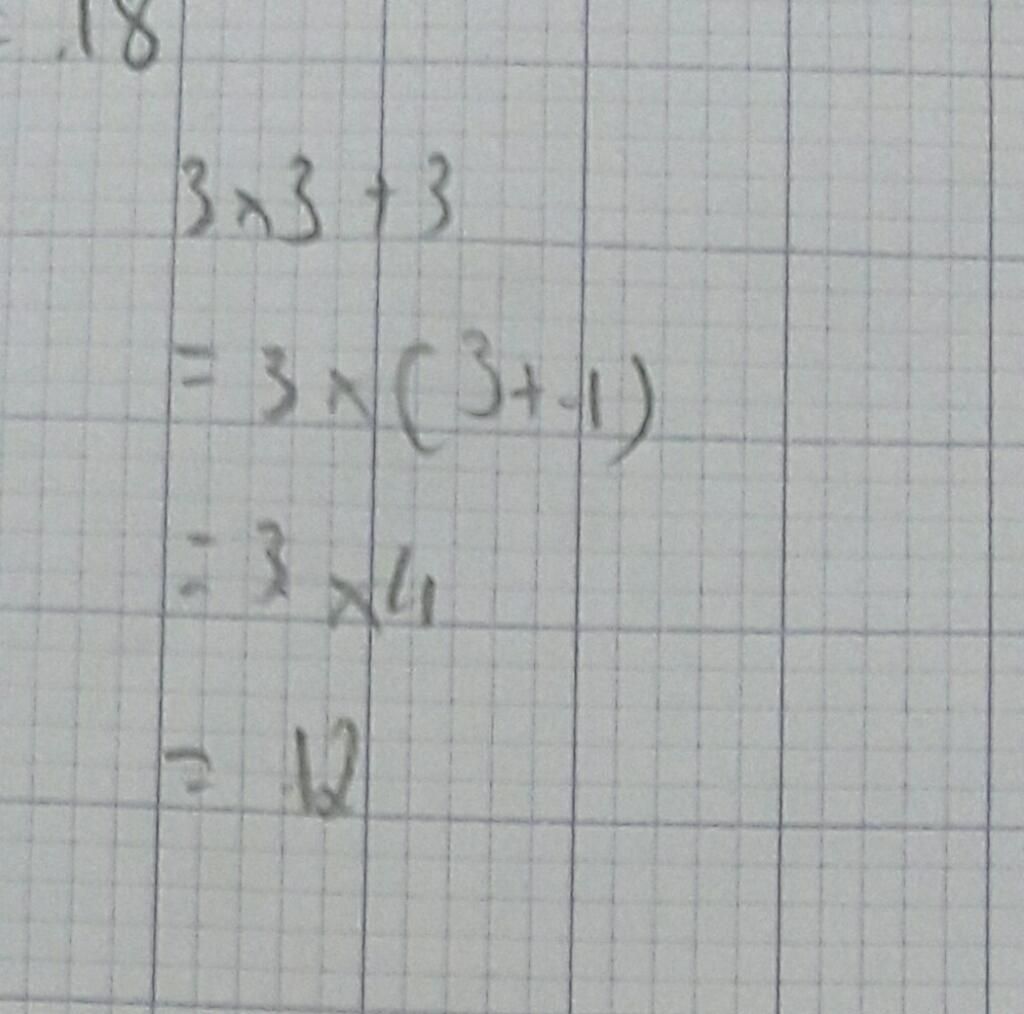 = 18
3 × 3 + 3
= 3 × (3 + 1)
= 3 × 4
= 12